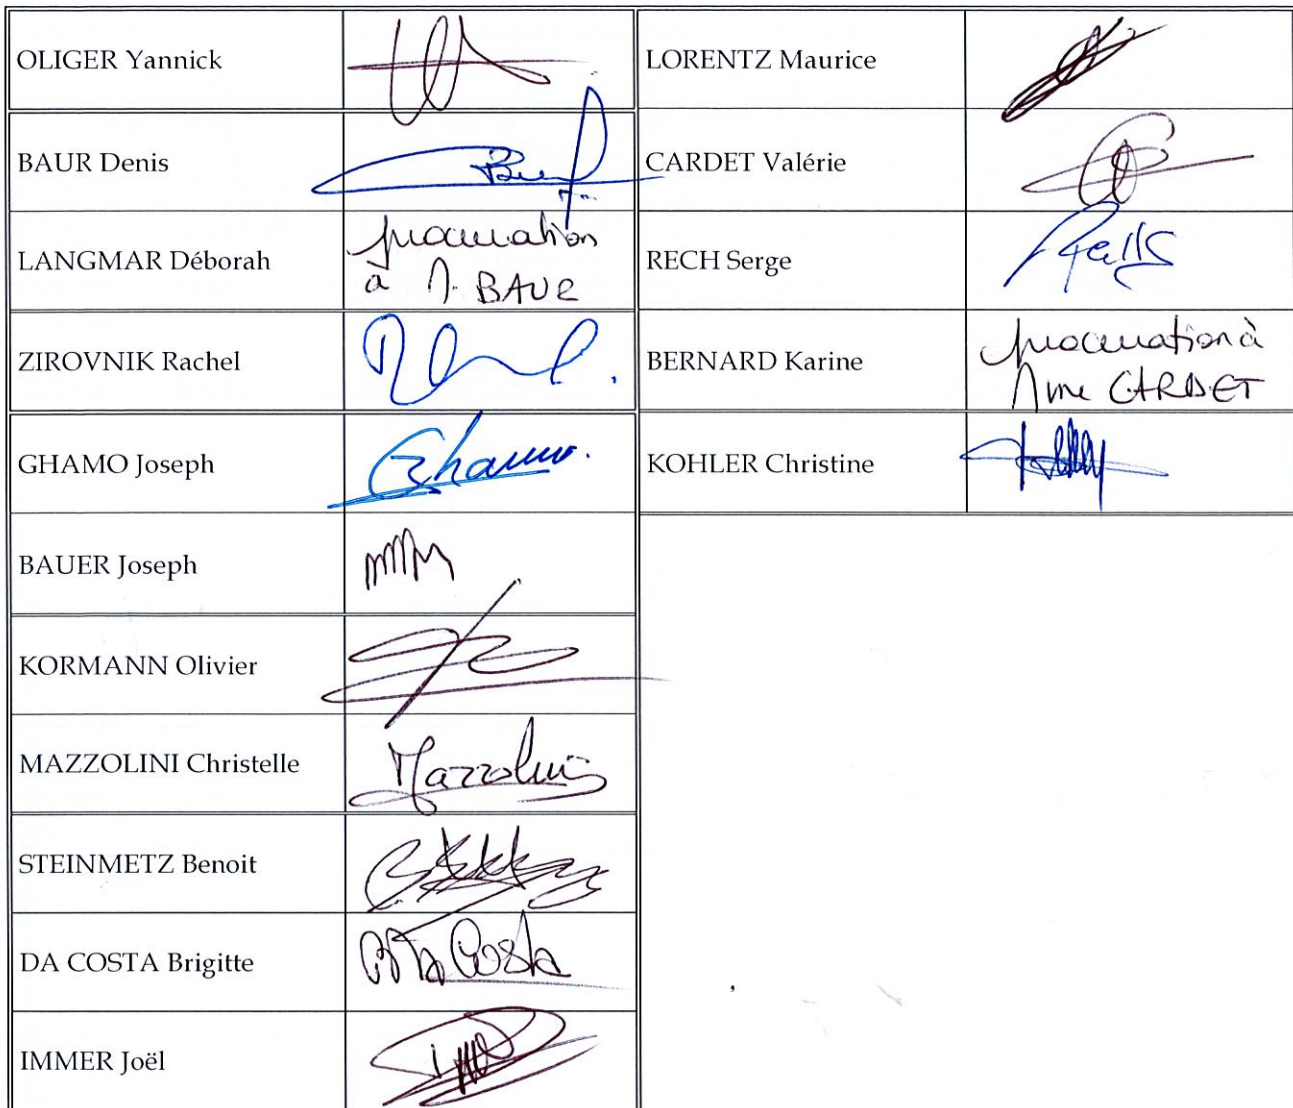 OLIGER Yannick
BAUR Denis
LANGMAR Déborah
procuration
à M. BAUR
ZIROVNIK Rachel
GHAMO Joseph
Ghamo.
BAUER Joseph
KORMANN Olivier
MAZZOLINI Christelle
Mazzolini
STEINMETZ Benoit
DA COSTA Brigitte
Da Costa
IMMER Joël
LORENTZ Maurice
CARDET Valérie
RECH Serge
BERNARD Karine
procuration à
Mme CARDET
KOHLER Christine